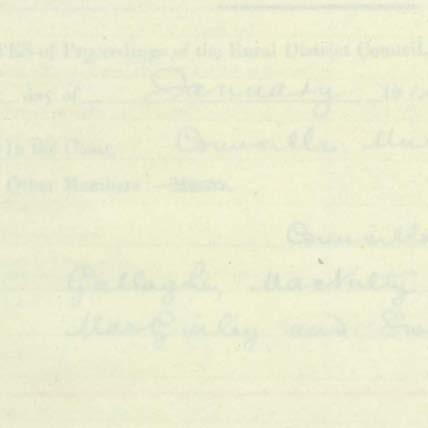 TES of Proceedings of the Rural District Council,
day of January 19
In the Chair, Councillor
Other Members:—Messrs.
Councillo
Gallagher, MacNulty
MacGinley and